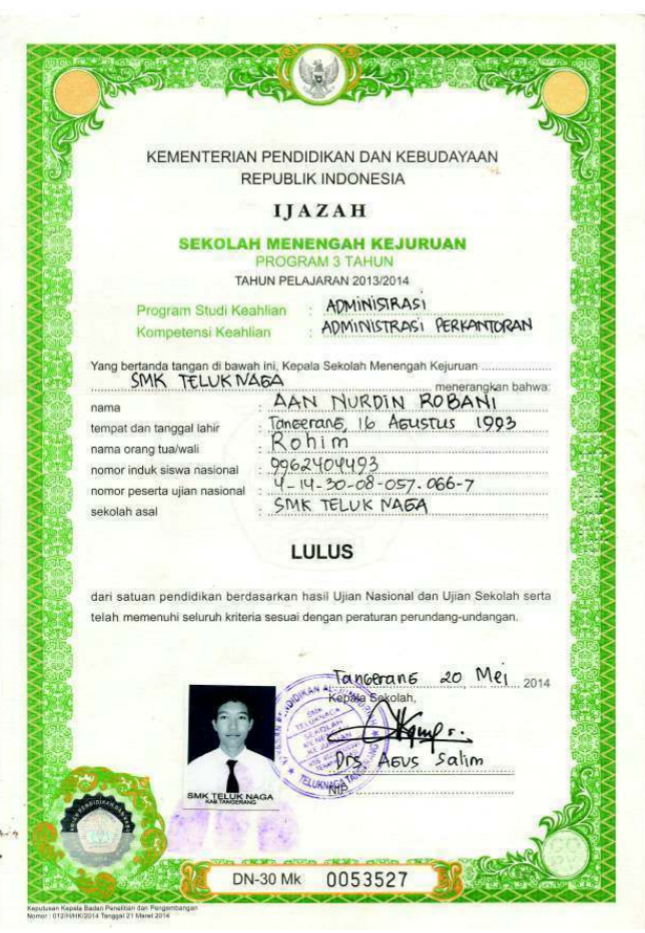 KEMENTERIAN PENDIDIKAN DAN KEBUDAYAAN
REPUBLIK INDONESIA
IJAZAH
SEKOLAH MENENGAH KEJURUAN
PROGRAM 3 TAHUN
TAHUN PELAJARAN 2013/2014
Program Studi Keahlian : ADMINISTRASI
Kompetensi Keahlian : ADMINISTRASI PERKANTORAN
Yang bertanda tangan di bawah ini, Kepala Sekolah Menengah Kejuruan
SMK TELUK NAGA menerangkan bahwa:
nama : AAN NURDIN ROBANI
tempat dan tanggal lahir : Tangerang, 16 AGUSTUS 1993
nama orang tua/wali : Rohim
nomor induk siswa nasional : 9962404493
nomor peserta ujian nasional : 4-14-30-08-057-066-7
sekolah asal : SMK TELUK NAGA
LULUS
dari satuan pendidikan berdasarkan hasil Ujian Nasional dan Ujian Sekolah serta
telah memenuhi seluruh kriteria sesuai dengan peraturan perundang-undangan.
Tangerang 20 Mei 2014
Kepala Sekolah,
Drs Agus Salim
NIP
SMK TELUK NAGA
KAB.TANGERANG
SMK
TELUKNAGA
SEKOLAH
MENENGAH
KEJURUAN
TELUKNAGA TANGERANG
DN-30 Mk 0053527
Keputusan Kepala Badan Penelitian dan Pengembangan
Nomor : 012/H/HK/2014 Tanggal 21 Maret 2014